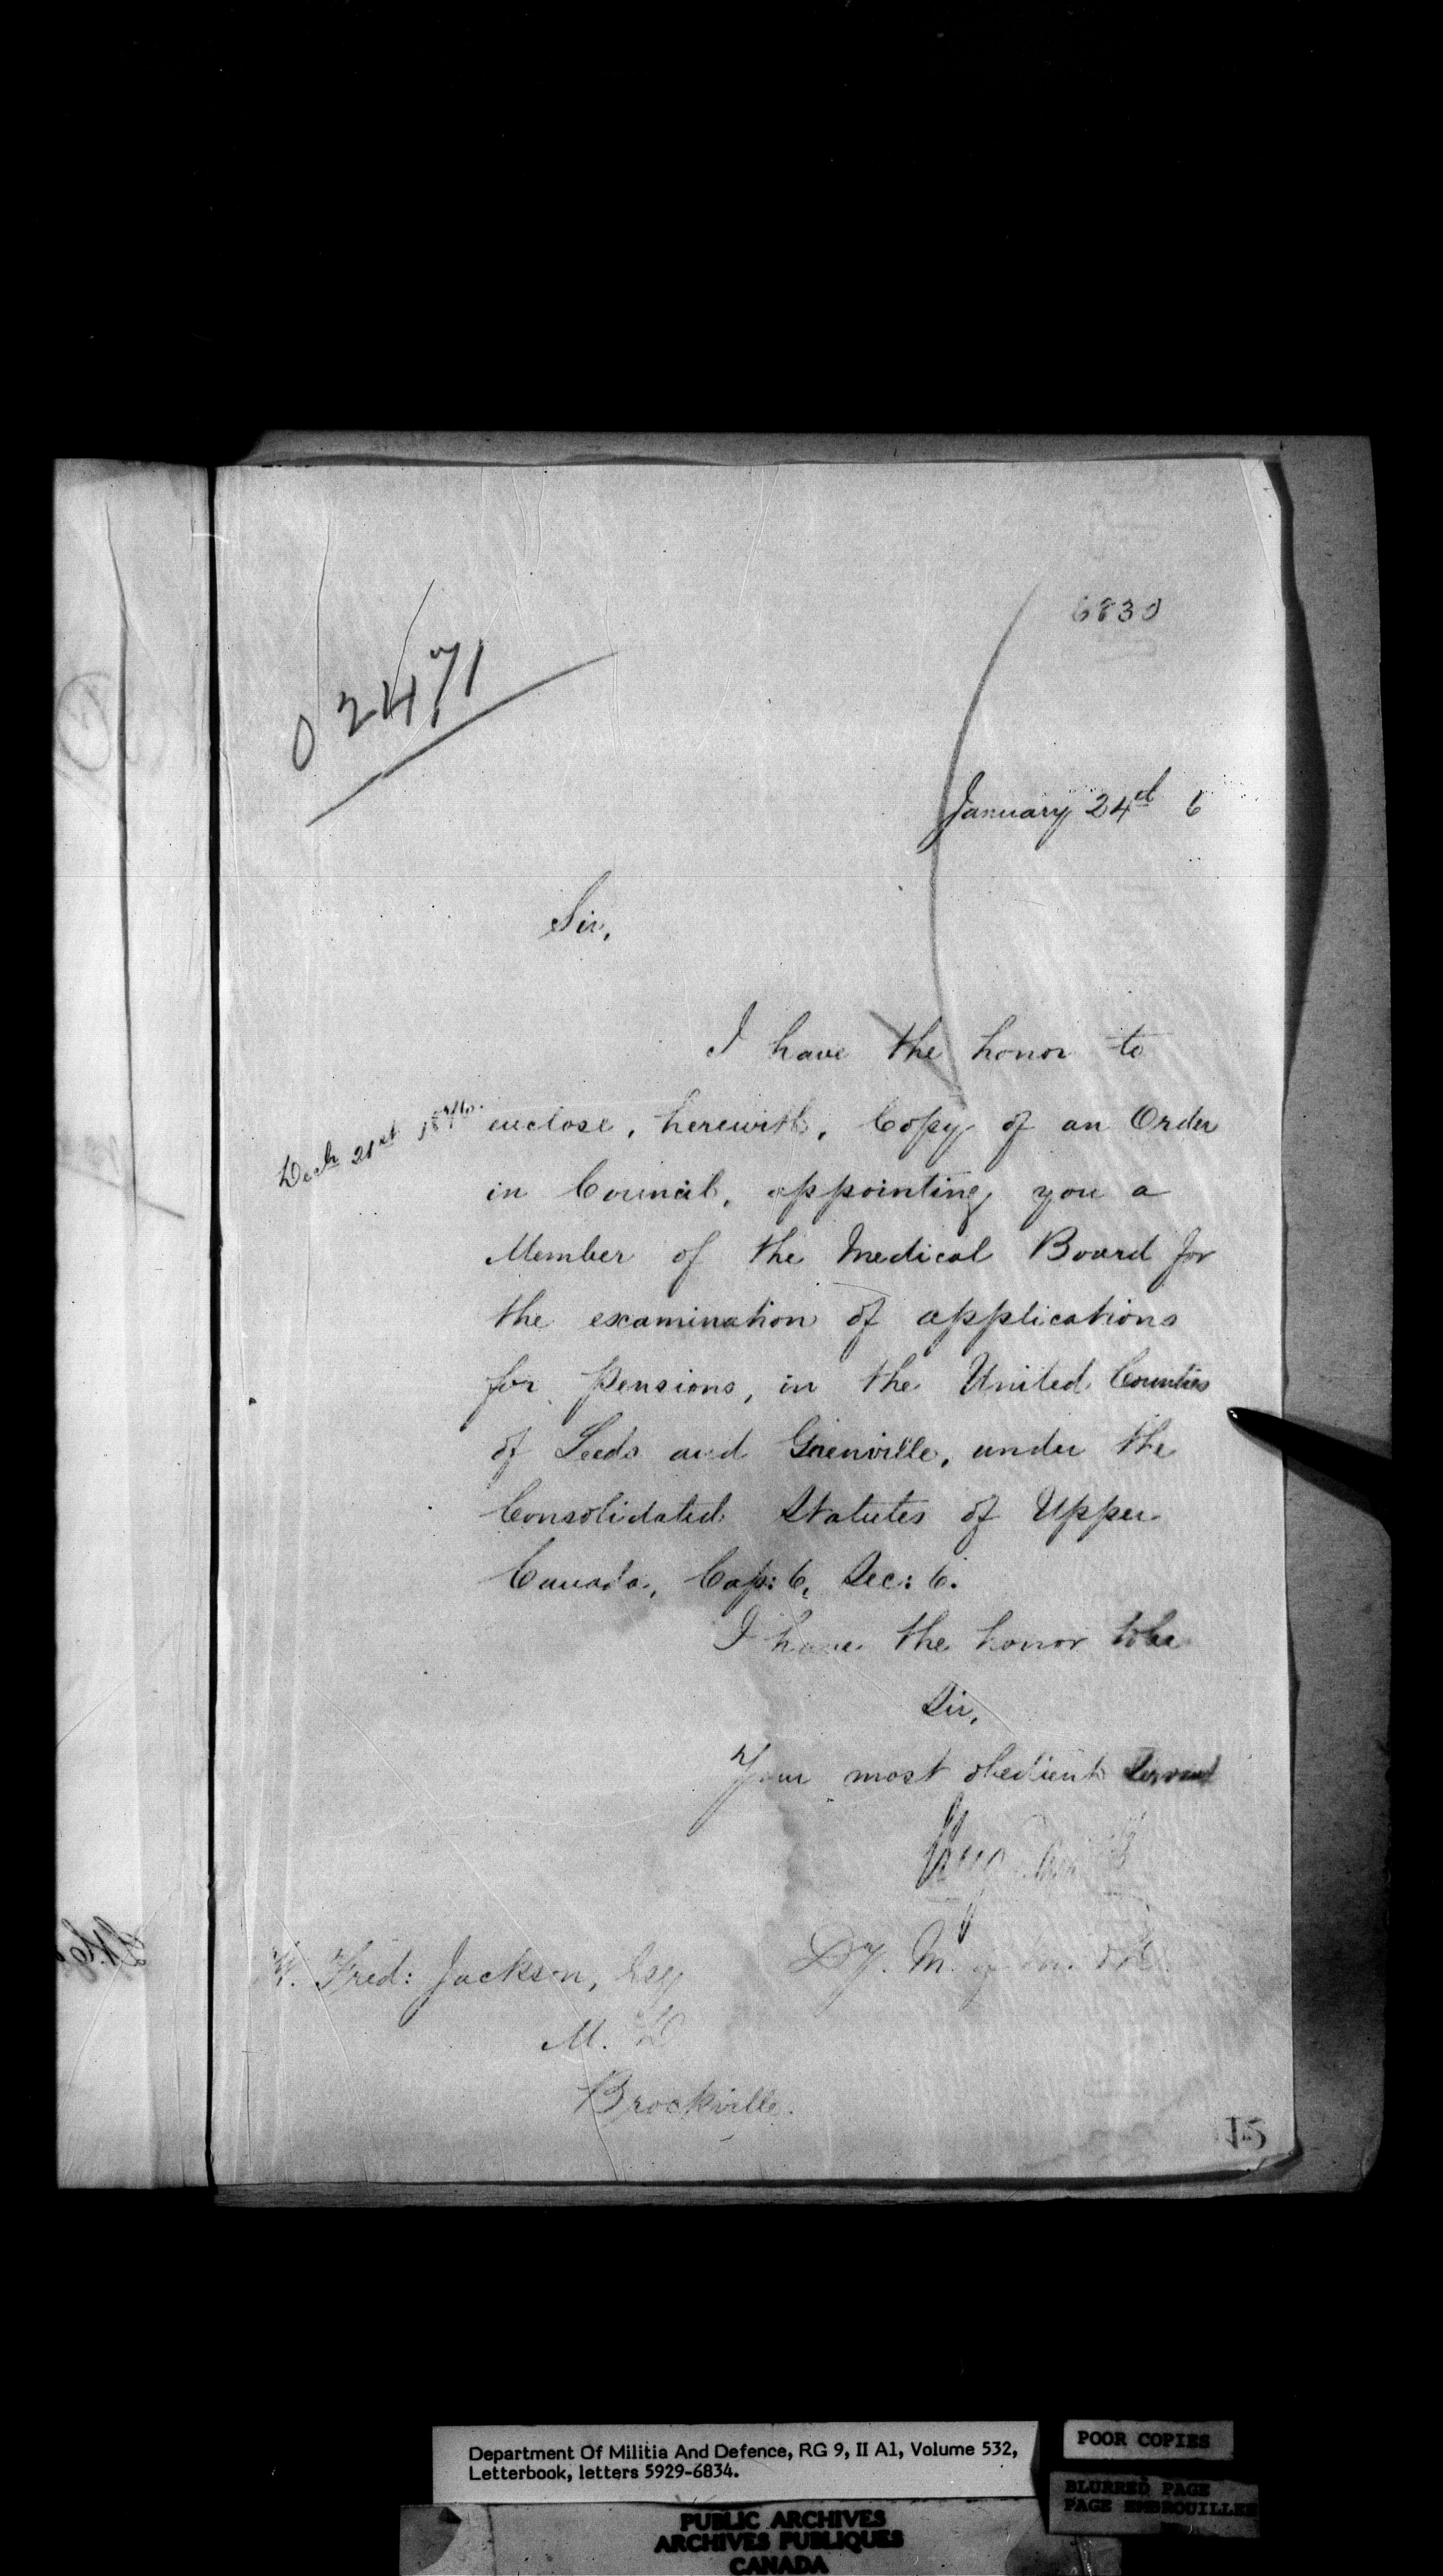 6830
02471
January 24th 6
Sir,
I have the honor to
Decr 21st
enclose, herewith, Copy of an Order
in Council, appointing you a
Member of the Medical Board for
the examination of applications
for Pensions, in the United Counties
of Leeds and Grenville, under the
Consolidated Statutes of Upper
Canada, Cap: 6, Sec: 6.
I have the honor to be
Sir,
Your most obedient Servant
Dy. M. of
Fred: Jackson, Esq
M. D
Brockville.
15
Department Of Militia And Defence, RG 9, II A1, Volume 532,
Letterbook, letters 5929-6834.
POOR COPIES
BLURRED PAGE
PAGE EMBROUILLEE
PUBLIC ARCHIVES
ARCHIVES PUBLIQUES
CANADA